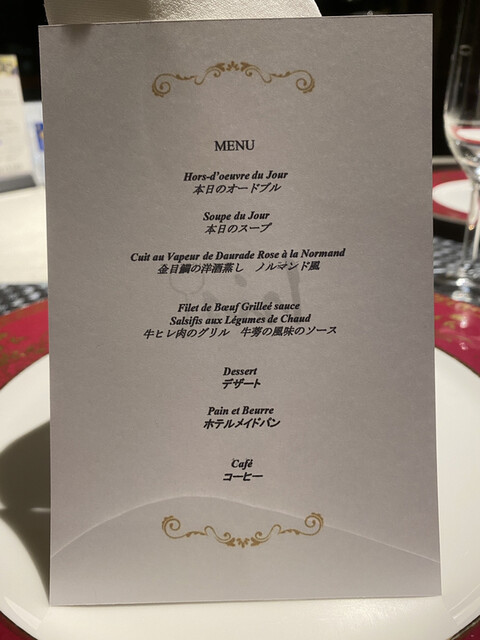 MENU
Hors-d'oeuvre du Jour
本日のオードブル
Soupe du Jour
本日のスープ
Cuit au Vapeur de Daurade Rose à la Normand
金目鯛の洋酒蒸し　ノルマンド風
Filet de Bœuf Grilleé sauce
Salsifis aux Légumes de Chaud
牛ヒレ肉のグリル　牛蒡の風味のソース
Dessert
デザート
Pain et Beurre
ホテルメイドパン
Café
コーヒー